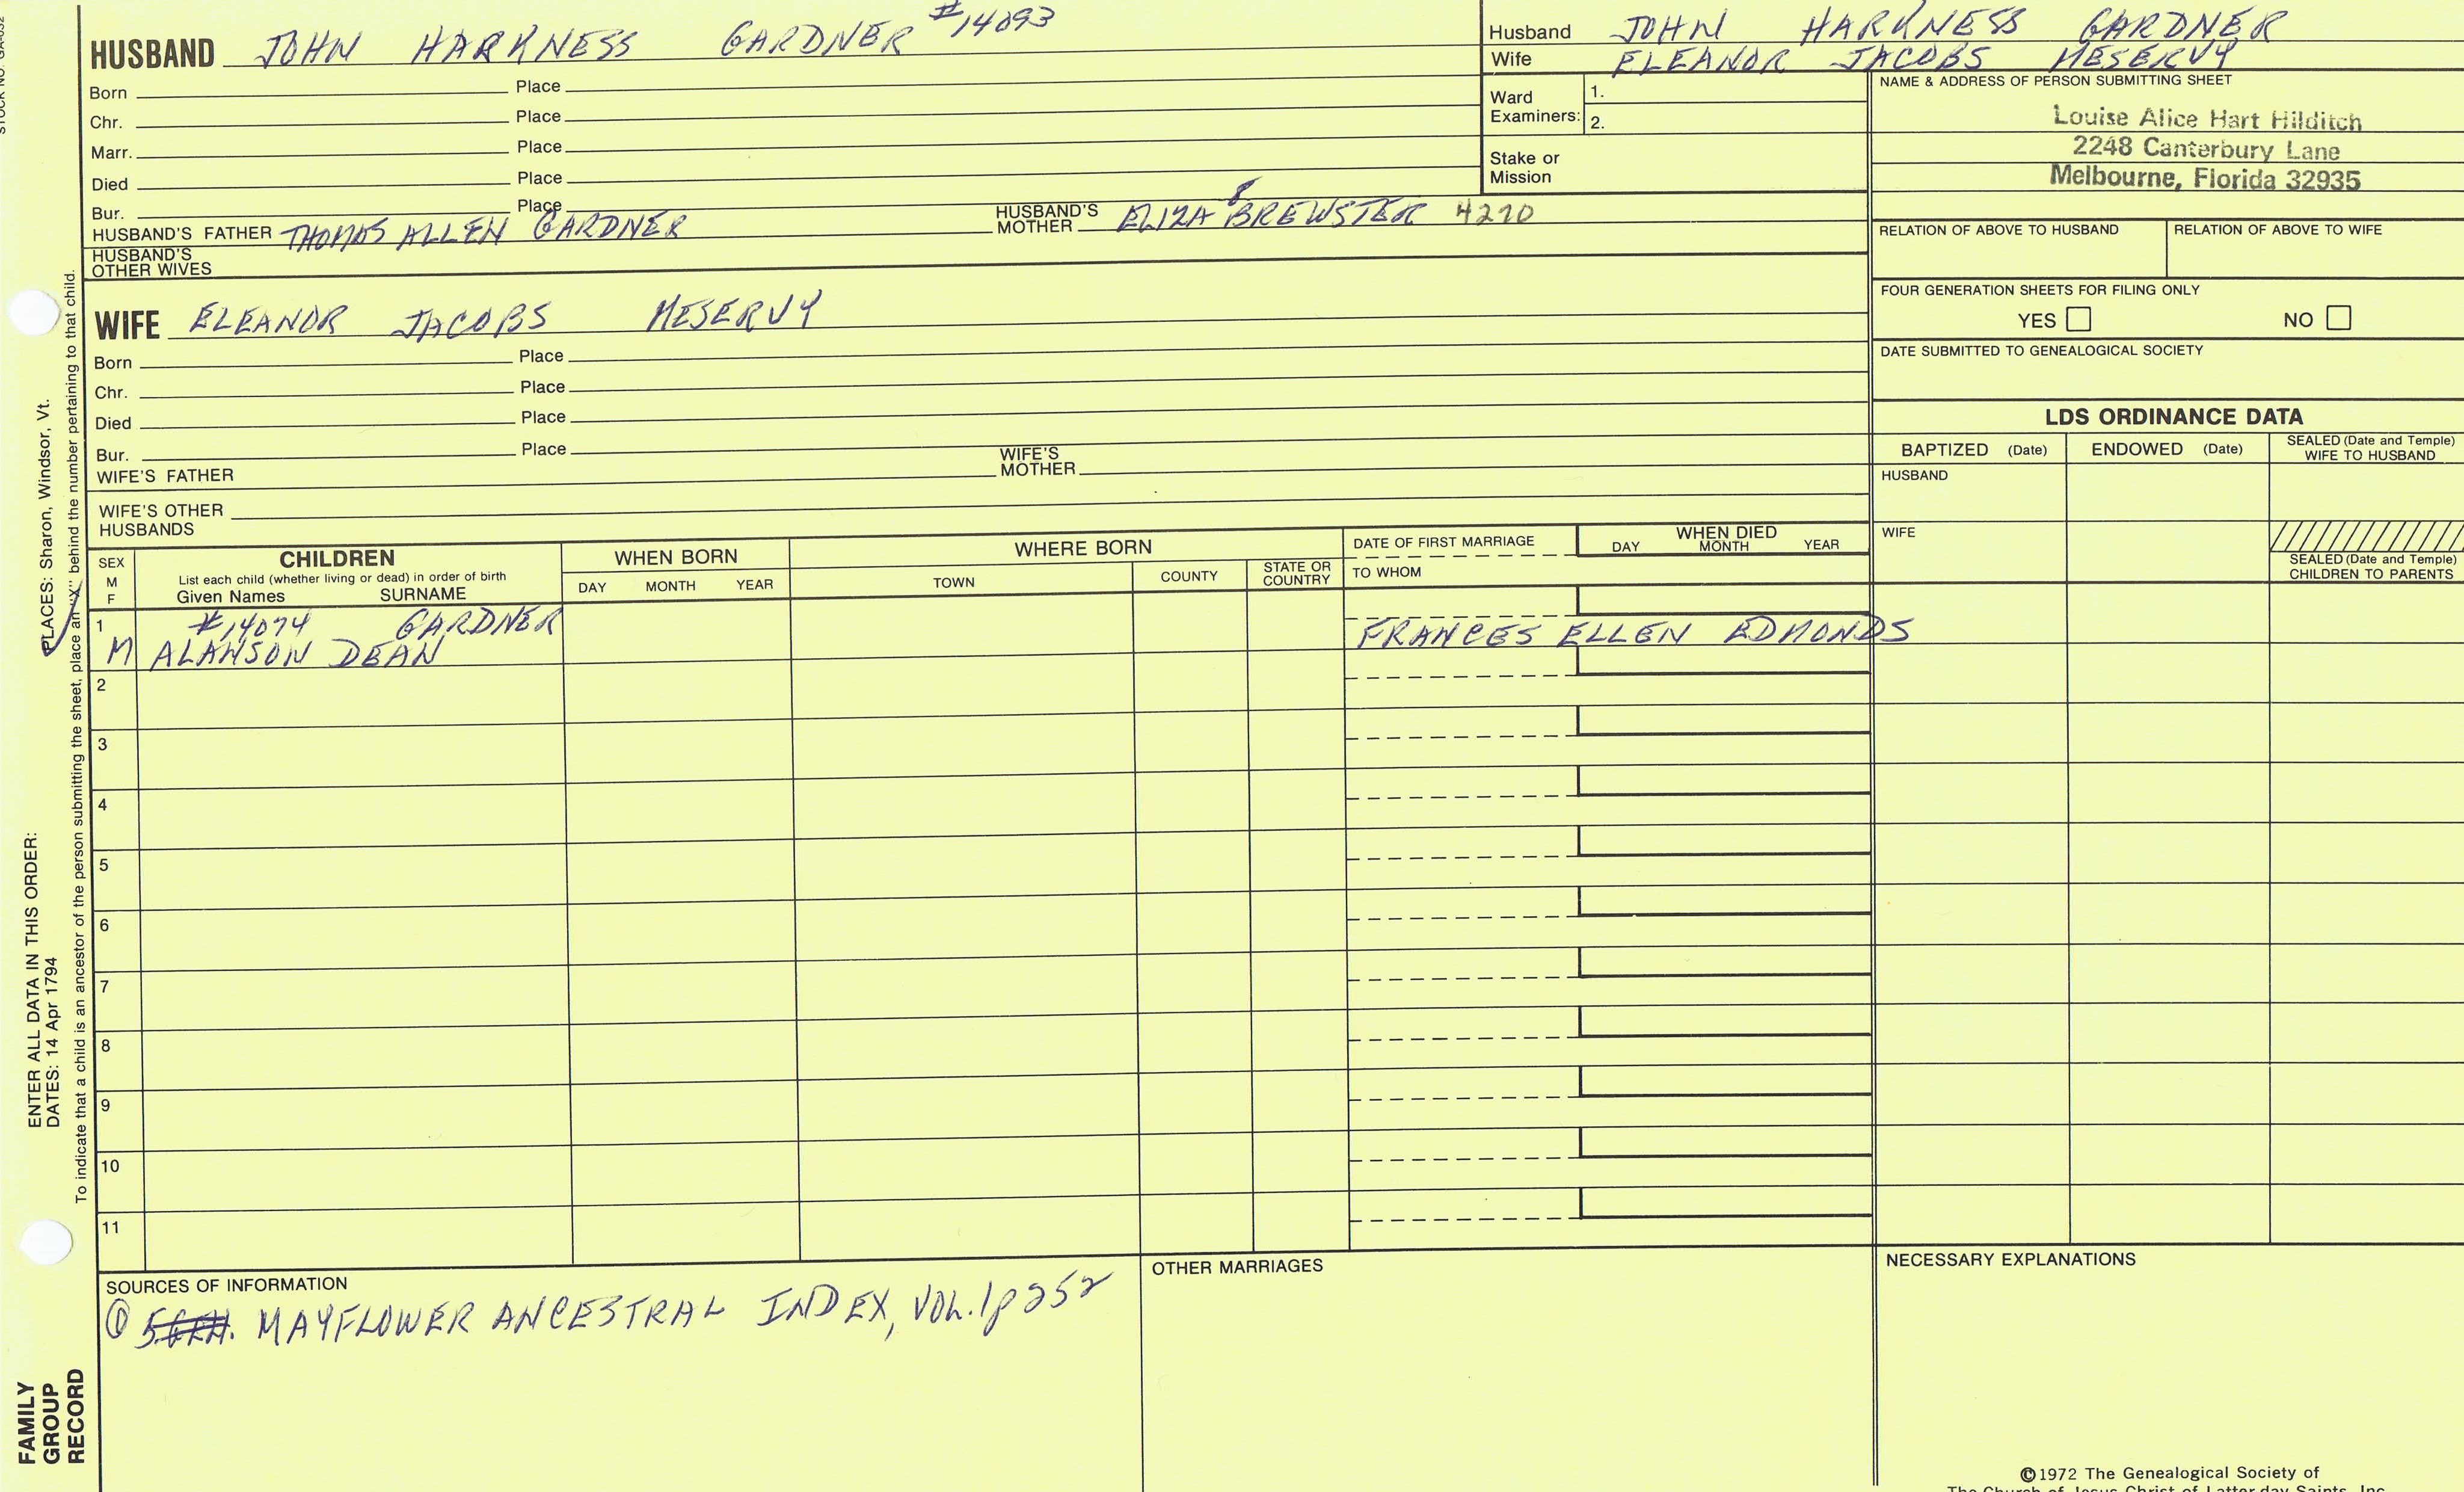 STOCK NO. GA-632
HUSBAND JOHN HARKNESS GARDNER #14093
Born Place
Chr. Place
Marr. Place
Died Place
Bur. Place
HUSBAND'S FATHER THOMAS ALLEN GARDNER HUSBAND'S MOTHER ELIZA 8 BREWSTER 4270
HUSBAND'S
OTHER WIVES
Husband JOHN HARKNESS GARDNER
Wife ELEANOR JACOBS MESERVY
Ward
Examiners:
1.
2.
Stake or
Mission
NAME & ADDRESS OF PERSON SUBMITTING SHEET
Louise Alice Hart Hilditch
2248 Canterbury Lane
Melbourne, Florida 32935
RELATION OF ABOVE TO HUSBAND RELATION OF ABOVE TO WIFE
FOUR GENERATION SHEETS FOR FILING ONLY
YES NO
DATE SUBMITTED TO GENEALOGICAL SOCIETY
WIFE ELEANOR JACOBS MESERVY
Born Place
Chr. Place
Died Place
Bur. Place
WIFE'S FATHER WIFE'S MOTHER
WIFE'S OTHER
HUSBANDS
LDS ORDINANCE DATA
BAPTIZED (Date) ENDOWED (Date) SEALED (Date and Temple)
WIFE TO HUSBAND
HUSBAND
WIFE
SEALED (Date and Temple)
CHILDREN TO PARENTS
SEX
M
F
CHILDREN
List each child (whether living or dead) in order of birth
Given Names SURNAME
WHEN BORN
DAY MONTH YEAR
WHERE BORN
TOWN COUNTY STATE OR COUNTRY
DATE OF FIRST MARRIAGE
TO WHOM
WHEN DIED
DAY MONTH YEAR
1 #14094 GARDNER
M ALANSON DEAN FRANCES ELLEN EDMONDS
2
3
4
5
6
7
8
9
10
11
SOURCES OF INFORMATION
① MAYFLOWER ANCESTRAL INDEX, VOL. 1 p252
OTHER MARRIAGES
NECESSARY EXPLANATIONS
ENTER ALL DATA IN THIS ORDER:
DATES: 14 Apr 1794 PLACES: Sharon, Windsor, Vt.
To indicate that a child is an ancestor of the person submitting the sheet, place an "X" behind the number pertaining to that child.
FAMILY
GROUP
RECORD
©1972 The Genealogical Society of
The Church of Jesus Christ of Latter-day Saints, Inc.